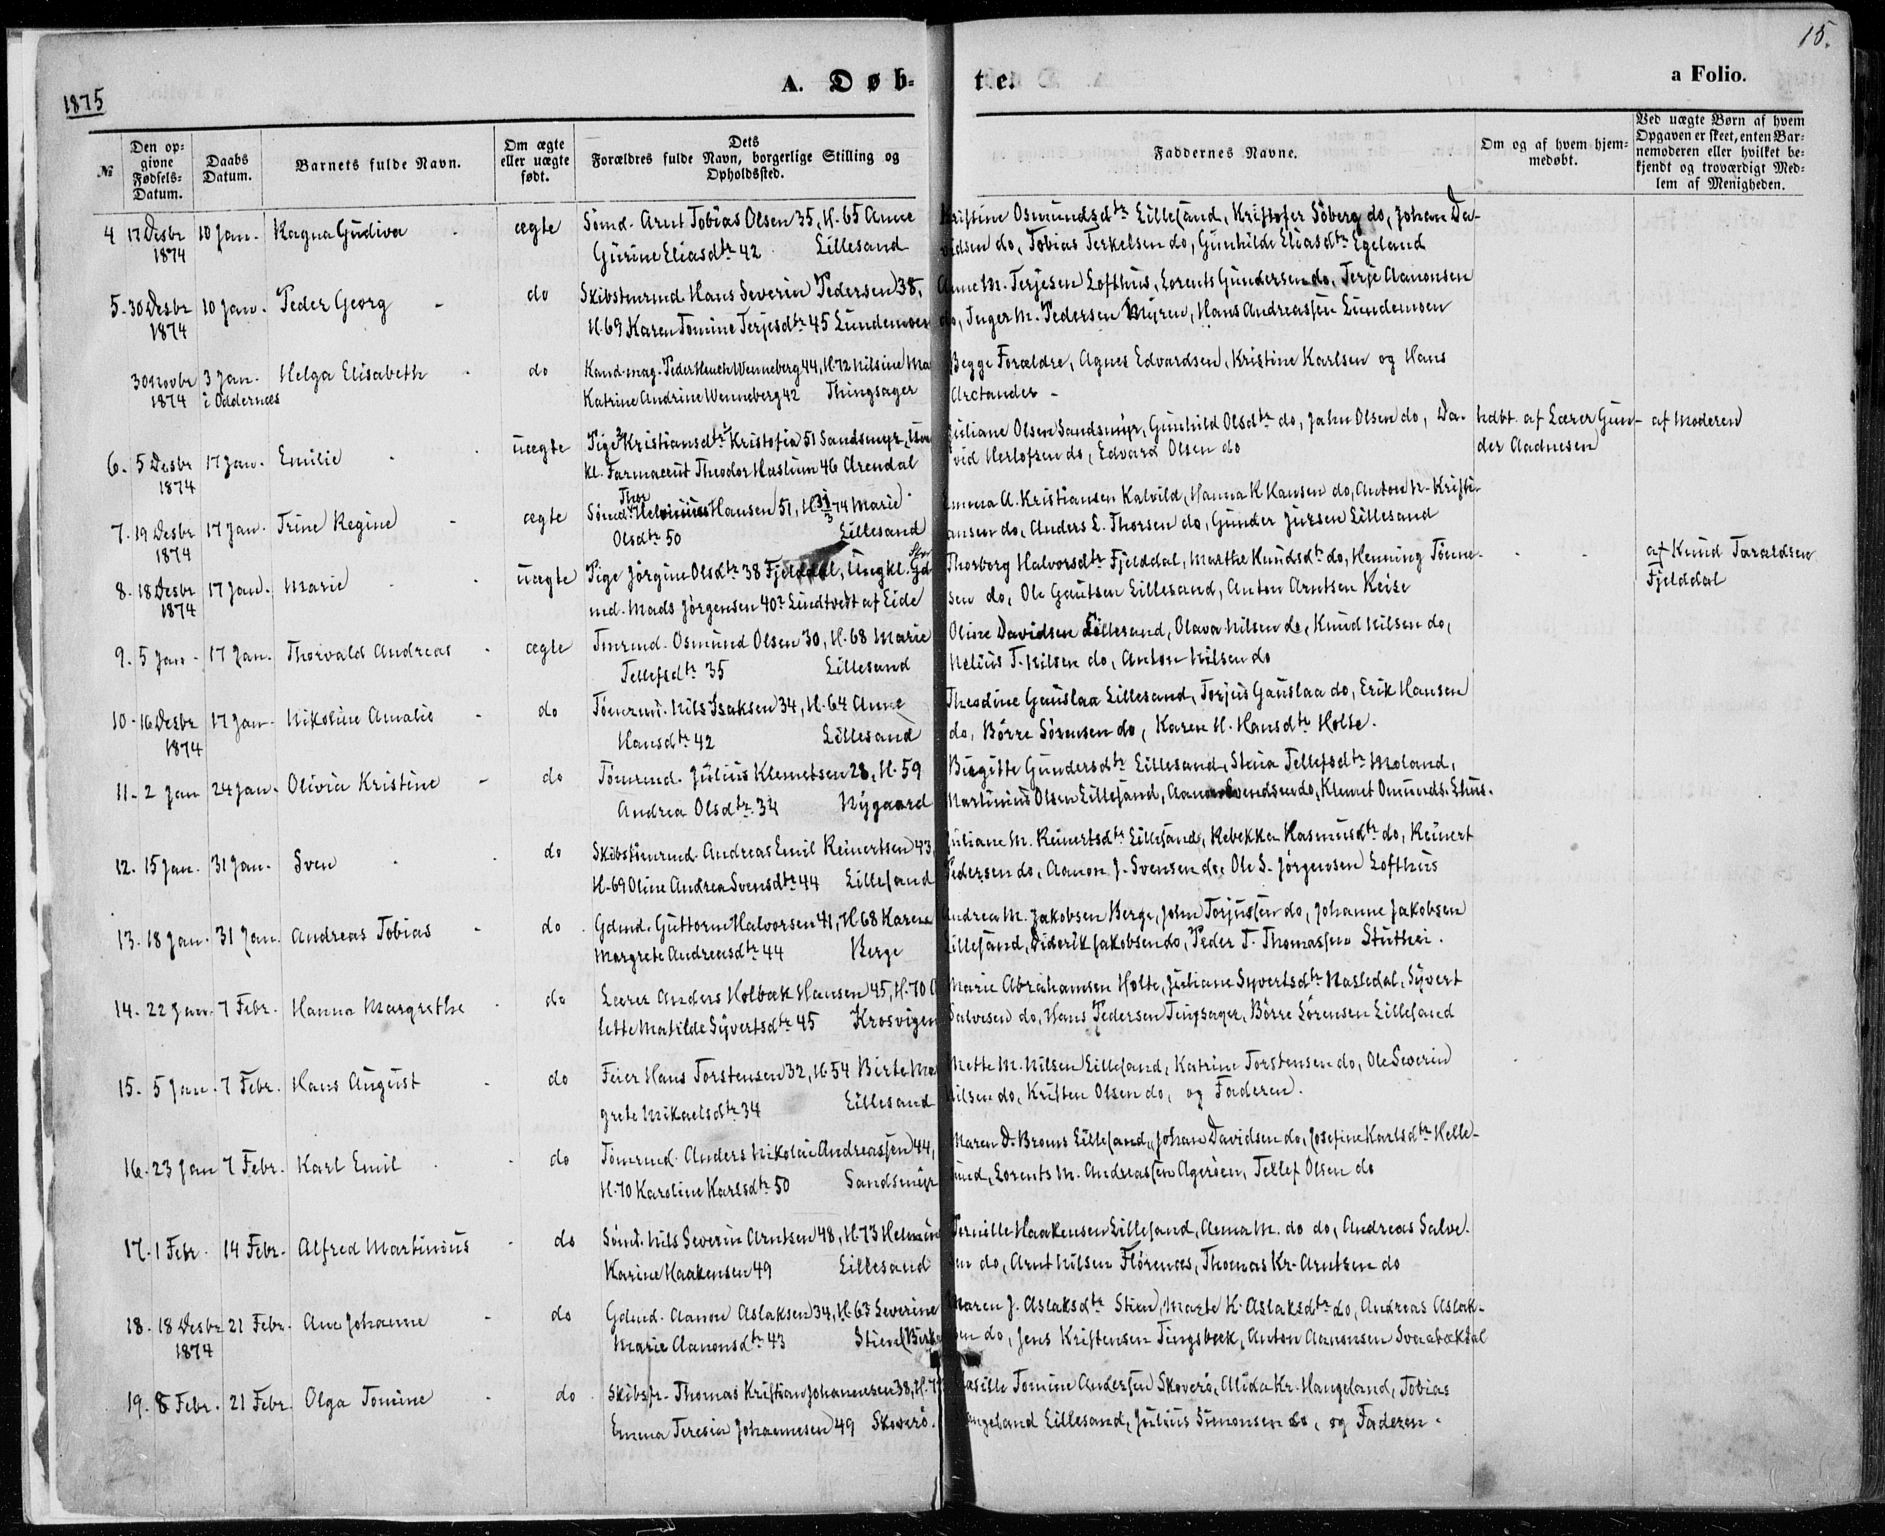 15.
1875
A. Døb-
te.
a Folio.
№
Den op-
givne
Fødsels-
Datum.
Daabs
Datum.
Barnets fulde Navn.
Om ægte
eller uægte
født.
Dets
Forældres fulde Navn, borgerlige Stilling og
Opholdssted.
Faddernes Navne.
Om og af hvem hjem-
medøbt.
Ved uægte Børn af hvem
Opgaven er skeet, enten Bar-
nemoderen eller hvilket be-
kjendt og troværdigt Med-
lem af Menigheden.
4 17 Desbr 10 Jan. Ragna Gudiva ægte Sömd. Arnt Tobias Olsen 35, H. 65 Anne Kristine Osmundsdtr Lillesand, Kristofer Söberg do, Johan Da-
1874 Gurine Eliasdtr 42 Lillesand vidsen do, Tobias Terkelsen do, Gunhilde Eliasdtr Egeland
5. 30 Desbr 10 Jan. Peder Georg do Skibstmrmd. Hans Severin Pedersen 38, Anne M. Terjesen Lofthus, Lorents Gundersen do, Terje Aanonsen
1874 H. 69 Karen Tomine Terjesdtr 45 Lundemoen do, Inger M. Pedersen Myren, Hans Andreassen Lundemoen
30 Novbr 3 Jan. Helga Elisabeth do Kand. mag. Peder Wenneberg 44, H. 72 Nilsine Ma Begge Forældre, Agnes Edvardsen, Kristine Karlsen og Hans
1874 i Oddernæs Katrine Andrine Wenneberg 42 Thingsager Arctander
6. 5 Desbr 17 Jan. Emilie uægte Pige Kristiansdtr Kristofia 51 Sandsmyr, Juliane Olsen Sandsmyr, Gunhild Olsdtr do, Jahn Olsen do, Da- hdbt. af Lærer Gun- af Moderen
1874 kl. Farmaceut Theodor Haslum 46 Arendal vid Herlofsen do, Edvard Olsen do der Aadnesen
7. 19 Desbr 17 Jan. Trine Regine ægte Sömd. Thor Hansen 51, H 31/3 74 Marie Emma A. Kristiansen Kalvild, Hanna K Hansen do, Anton N. Kristi-
1874 Olsdtr 50 Lillesand ansen do, Anders L. Thorsen do, Gunder Jursen Lillesand
8. 18 Desbr 17 Jan. Marie uægte Pige Jörgine Olsdtr 38 Fjelddal, Ungkl. Gd Thorborg Halvorsdtr Fjelddal, Marthe Knudsdtr do, Henning Tönne- af Knud Taraldsen
1874 md. Mads Jörgensen 40 Lindtvedt af Eide sen do, Ole Gautsen Lillesand, Anton Arntsen Keise Fjelddal
9. 5 Jan 17 Jan. Thorvald Andreas ægte Tmrmd. Osmund Olsen 30, H. 68 Marie Oline Davidsen Lillesand, Olava Nilsen do, Knud Nilsen do,
Tellefsdtr 35 Lillesand Nelius T. Nilsen do, Anton Nilsen do
10. 16 Desbr 17 Jan. Nikoline Amalie do Tömrmd. Nils Isaksen 34, H. 64 Anne Theodine Gauslaa Lillesand, Torjus Gauslaa do, Erik Hansen
1874 Hansdtr 42 Lillesand do, Börre Sörensen do, Karen H. Hansdtr Holte.
11. 2 Jan 24 Jan. Olivia Kristine do Tömrmd. Julius Klemetsen 28, H. 59 Birgitte Gundersdtr Lillesand, Stina Tellefsdtr Moland,
Andrea Olsdtr 34 Nygaard Martinius Olsen Lillesand, Aanon Svendsen do, Klemet
12. 15 Jan. 31 Jan. Sven do Skibstömrmd. Andreas Emil Reinertsen 43, Juliane M. Reinertsdtr Lillesand, Rebekka Rasmusdtr do, Reinert
H. 69 Oline Andrea Svensdtr 44 Lillesand Pedersen do, Aanon J. Svensen do, Ole S. Jörgensen Lofthus
13. 18 Jan. 31 Jan. Andreas Tobias do Gdmd. Guttorm Halvorsen 41, H 68 Karen Andrea M. Jakobsen Berge, John Torjussen do, Johanne Jakobsen
Margrete Andreasdtr 44 Berge Lillesand, Diderik Jakobsen do, Peder T. Thomassen Stuthei.
14. 22 Jan. 7 Febr. Hanna Margrethe do Lærer Anders Holbæk Hansen 45, H. 70 O Marie Abrahamsen Holte, Juliane Syvertsdtr Hasledal, Syvert
lette Matilde Syvertsdtr 45 Krosvigen Salvesen do, Hans Pedersen Tingsager, Börre Sörensen Lillesand
15. 5 Jan. 7 Febr. Hans August do Feier Hans Torstensen 32, H. 54 Birte Mar Mette M. Nilsen Lillesand, Katrine Torstensen do, Ole Severin
grete Mikaelsdtr 34 Lillesand Nilsen do, Kristen Olsen do, og Faderen.
16. 23 Jan 7 Febr. Karl Emil do Tömrmd. Anders Nikolai Andreassen 44, Maren D. Broms Lillesand, Johan Davidsen do, Josefine Karlsdtr Helle-
H. 70 Karoline Karlsdtr 50 Sandsmyr sund, Lorents M. Andreassen Ageröen, Tellef Olsen do
17. 1 Febr. 14 Febr. Alfred Martinius do Sömd. Nils Severin Arntsen 48, H. 73 Helmine Pernille Haakensen Lillesand, Anna M. do do, Andreas Salve-
Karine Haakensen 49 Lillesand sen do, Arnt Nilsen Flörenæs, Thomas Kr. Arntsen do
18. 18 Desbr 21 Febr. Ane Johanne do Gdmd. Aanon Aslaksen 34, H. 63 Severine Maren J. Aslaksdtr Stien, Marte K. Aslaksdtr do, Andreas Aslak-
1874 Marie Aanonsdtr 43 Stien (Birk sen do, Jens Kristensen Tingsbæk, Anton Aanonsen Svaabækdal
19. 8 Febr. 21 Febr. Olga Tomine do Skibsfr. Thomas Kristian Johannesen 38, H. 7 Tomine Andersen Skoverö, Alida Kr. Haugeland, Tobias
Emma Teresia Johannesen 49 Skoverö. Haugeland Lillesand, Julius Simonsen do, og Faderen.